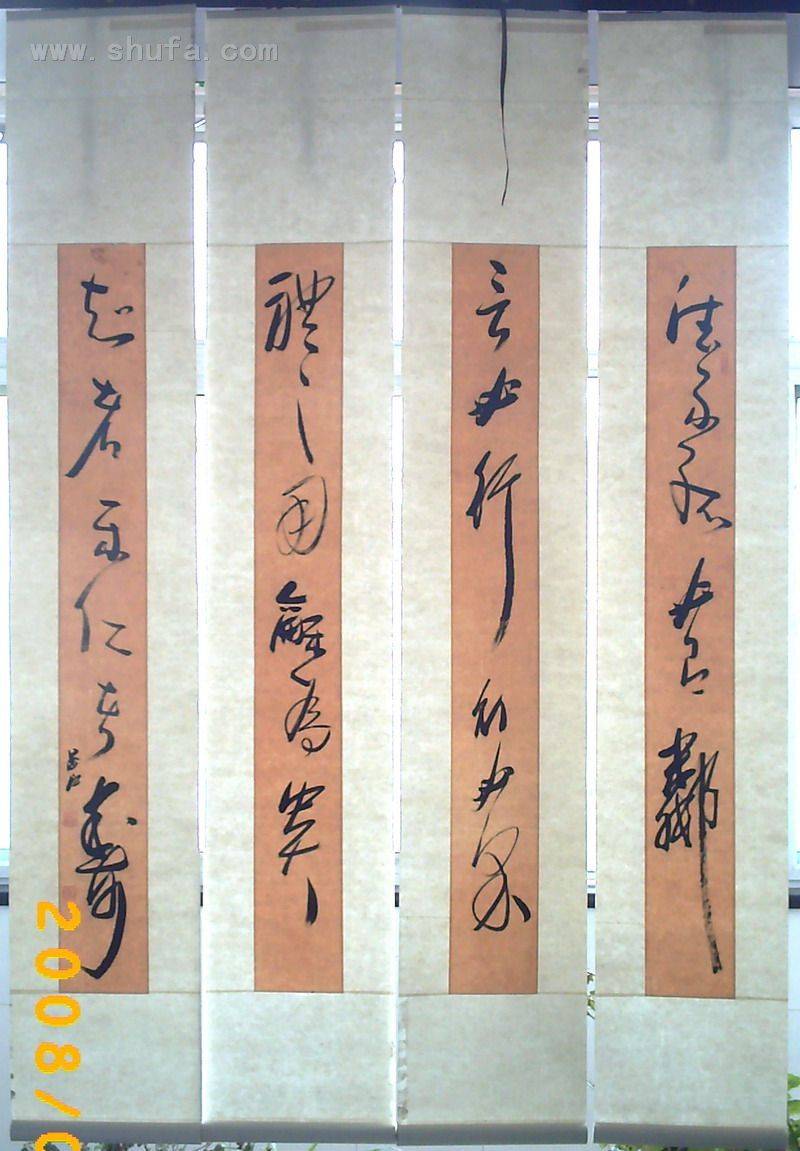 www.shufa.com
德不孤必有鄰
言必行行必果
禮之用龢為貴
知者樂仁者壽
2008/0